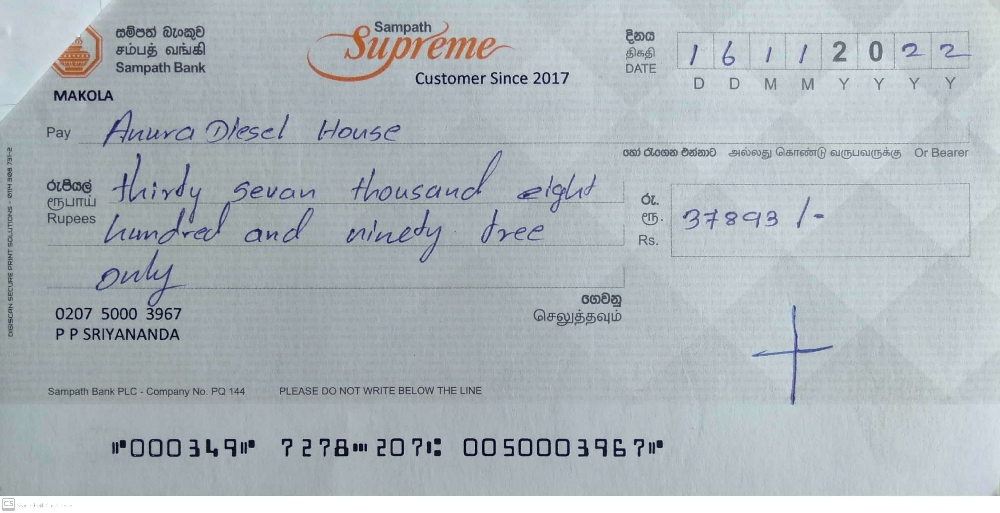 සම්පත් බැංකුව
சம்பத் வங்கி
Sampath Bank
Sampath
Supreme
Customer Since 2017
දිනය
திகதி
DATE
1 6 1 1 2 0 2 2
D D M M Y Y Y Y
MAKOLA
Pay Anura Diesel House
හෝ රැගෙන එන්නාට அல்லது கொண்டு வருபவருக்கு Or Bearer
රුපියල්
ரூபாய்
Rupees
thirdy sevan thousand eight
hundred and ninety tree
only
රු.
ரூ.
Rs.
37893/-
0207 5000 3967
P P SRIYANANDA
ගෙවනු
செலுத்தவும்
Sampath Bank PLC - Company No. PQ 144 PLEASE DO NOT WRITE BELOW THE LINE
⑈000349⑈ 7278⑉207⑆ 0050003967⑈
DIGISCAN SECURE PRINT SOLUTIONS
CS